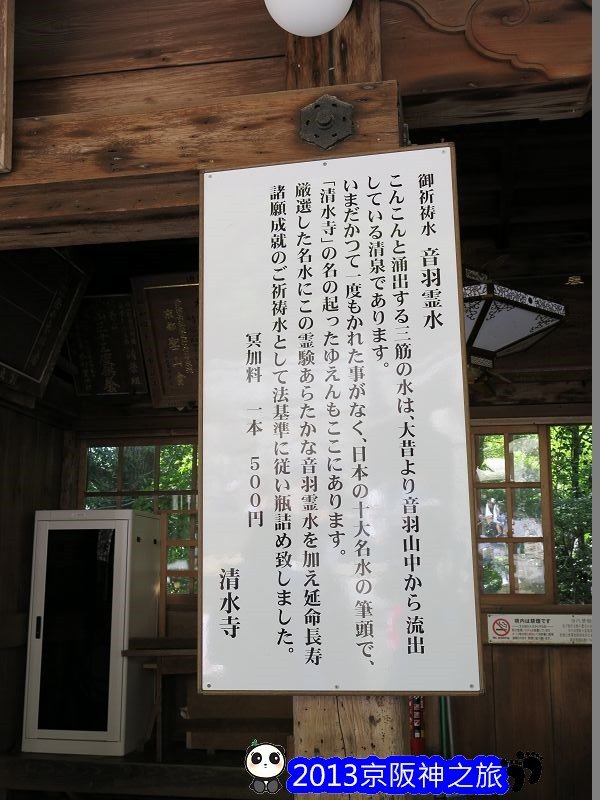 御祈祷水 音羽霊水
こんこんと涌出する三筋の水は、大昔より音羽山中から流出
している清泉であります。
いまだかつて一度もかれた事がなく、日本の十大名水の筆頭で、
「清水寺」の名の起ったゆえんもここにあります。
厳選した名水にこの霊験あらたかな音羽霊水を加え延命長寿
諸願成就のご祈祷水として法基準に従い瓶詰め致しました。
冥加料 一本 500円
清水寺
境内は禁煙です
2013京阪神之旅